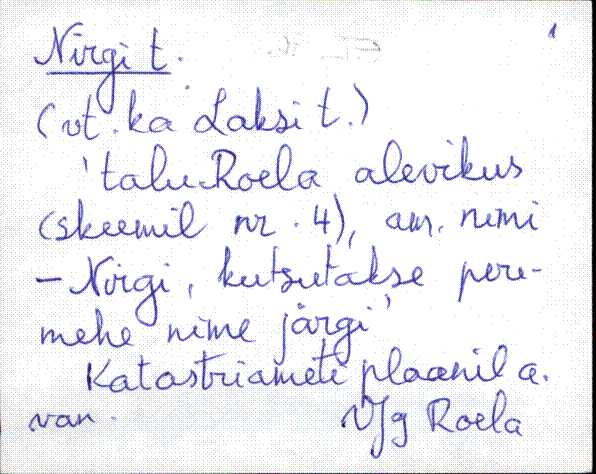 1
Nirgi t.
(vt. ka Laksi t.)
'talu Roela alevikus
(skeemil nr. 4), am. nimi
- Nirgi, kutsutakse pere-
mehe nime järgi'
Katastriameti plaanil a.
van. VJg Roela